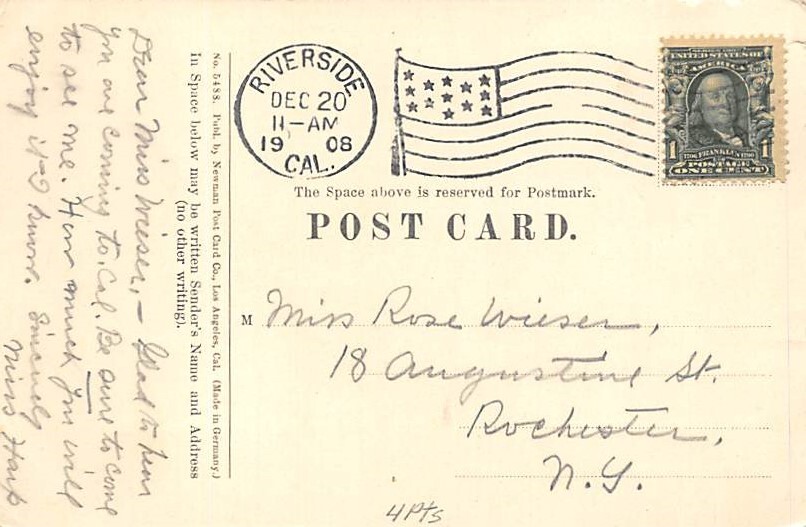 Dear Miss Wieser, – Glad to hear
you are coming to Cal. Be sure to come
to see me. How much you will
enjoy it I know. Sincerely
Miss Harp
in Space below may be written Sender's Name and Address
(no other writing).
No. 5488. Publ. by Newman Post Card Co., Los Angeles, Cal. (Made in Germany.)
RIVERSIDE
DEC 20
11-AM
1908
CAL.
SERIES 1902
UNITED STATES OF
AMERICA
1706 FRANKLIN 1790
1 POSTAGE 1
ONE CENT
The Space above is reserved for Postmark.
POST CARD.
M Miss Rose Wieser,
18 Augustine St.
Rochester,
N.Y.
4 Pts